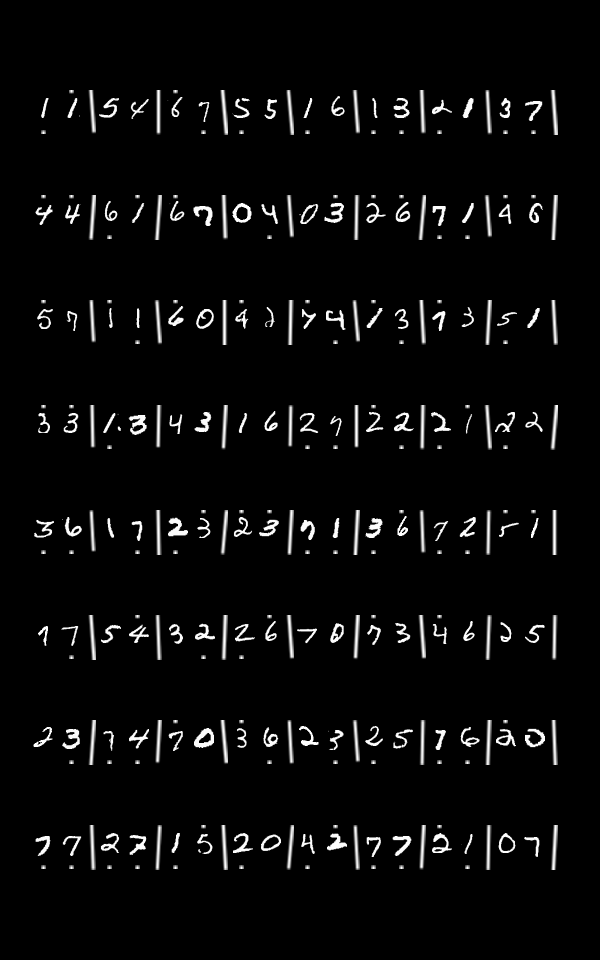 1̣ 1̇ | 5 4 | 6̇ 7̣ | 5̣ 5 | 1̣ 6 | 1̣ 3̣ | 2̣ 1 | 3̣ 7̣ |
4̇ 4̇ | 6̣ 1̇ | 6̇ 7 | 0 4̣ | 0 3̇ | 2̇ 6̇ | 7̣ 1̣ | 4̇ 6̇ |
5̇ 7 | 1̇ 1̣ | 6̇ 0 | 4̇ 2 | 7̇ 4̣ | 1̇ 3̣ | 7̇ 3 | 5̣ 1 |
3̇ 3̇ | 1̣ 3 | 4 3 | 1 6 | 2 7̣ | 2̇ 2̣ | 2̣ 1̇ | 2̣ 2 |
3̣ 6̣ | 1 7̣ | 2̣ 3̇ | 2̇ 3̇ | 7̣ 1̣ | 3̣ 6̇ | 7 2̣ | 5 1̇ |
1 7̣ | 5 4̇ | 3 2̣ | 2̣ 6̇ | 7 0 | 7̇ 3 | 4̇ 6 | 2 5 |
2 3̣ | 7̣ 4̣ | 7̇ 0 | 3̇ 6̣ | 2 3̇ | 2̇ 5 | 7̣ 6̣ | 2̇ 0 |
7̣ 7̣ | 2̣ 7̣ | 1̣ 5̇ | 2̣ 0 | 4̣ 2̇ | 7̣ 7̣ | 2̇ 1̣ | 0 7 |